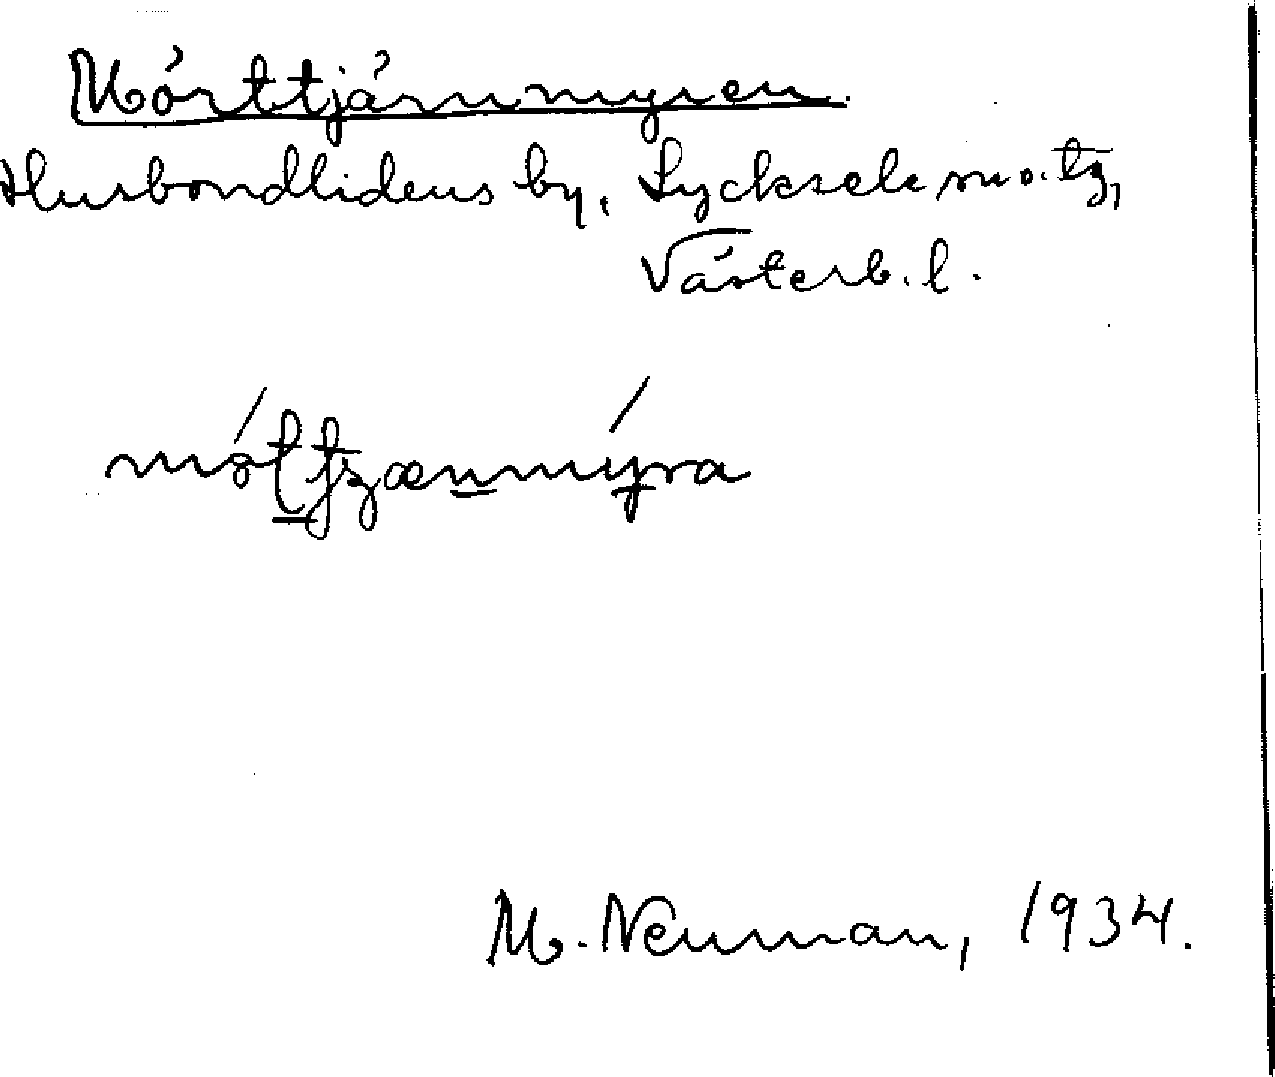 Mörttjärnmyren.
Husbondlidens by, Lycksele mo. tg,
Västerb. l.
M. Neuman, 1934.